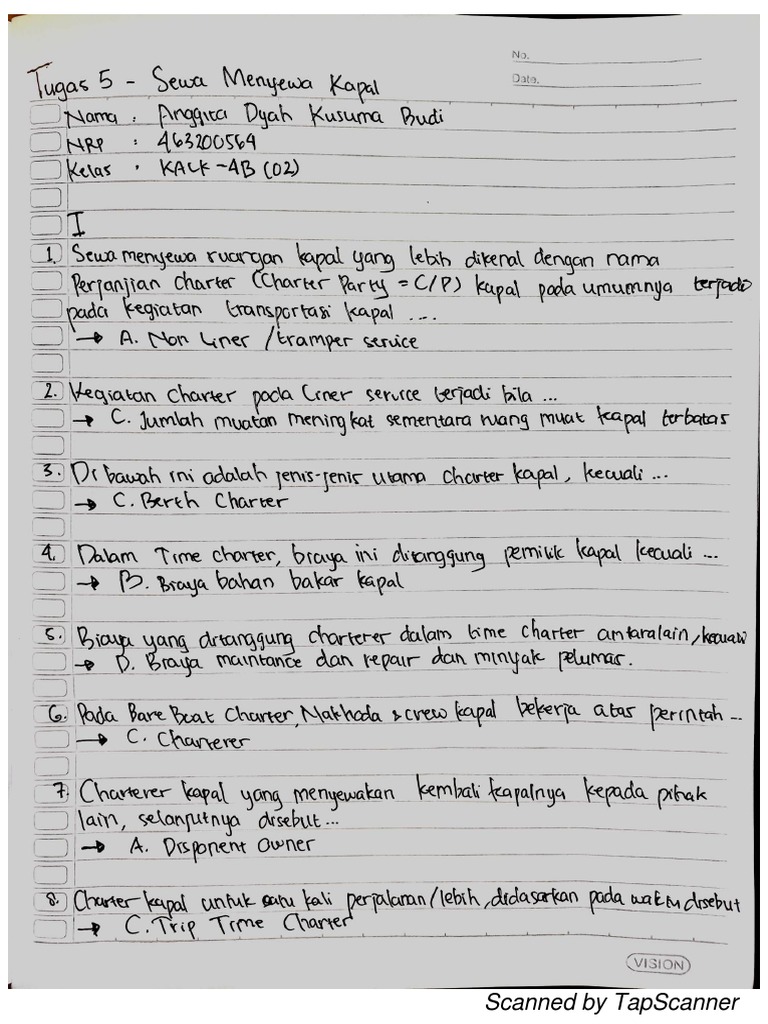 No.
Date.
Tugas 5 - Sewa Menyewa Kapal
Nama : Anggita Dyah Kusuma Budi
NRP : 463200564
Kelas : KALK-4B (02)
I
1. Sewa menyewa ruangan kapal yang lebih dikenal dengan nama
Perjanjian charter (Charter Party = C/P) kapal pada umumnya terjadi
pada kegiatan transportasi kapal ....
→ A. Non Liner / tramper service
2. Kegiatan charter pada Liner service terjadi bila ...
→ C. Jumlah muatan meningkat sementara ruang muat kapal terbatas
3. Di bawah ini adalah jenis-jenis utama charter kapal, kecuali ...
→ C. Berth Charter
4. Dalam Time charter, biaya ini ditanggung pemilik kapal kecuali ...
→ B. Biaya bahan bakar kapal
5. Biaya yang ditanggung charterer dalam time charter antaralain, kecuali
→ D. Biaya maintance dan repair dan minyak pelumas.
6. Pada Bare Boat Charter, Nakhoda & crew kapal bekerja atas perintah ...
→ C. Charterer
7. Charterer kapal yang menyewakan kembali kapalnya kepada pihak
lain, selanjutnya disebut ...
→ A. Disponent Owner
8. Charter kapal untuk satu kali perjalanan/lebih, didasarkan pada waktu disebut
→ C. Trip Time Charter
VISION
Scanned by TapScanner